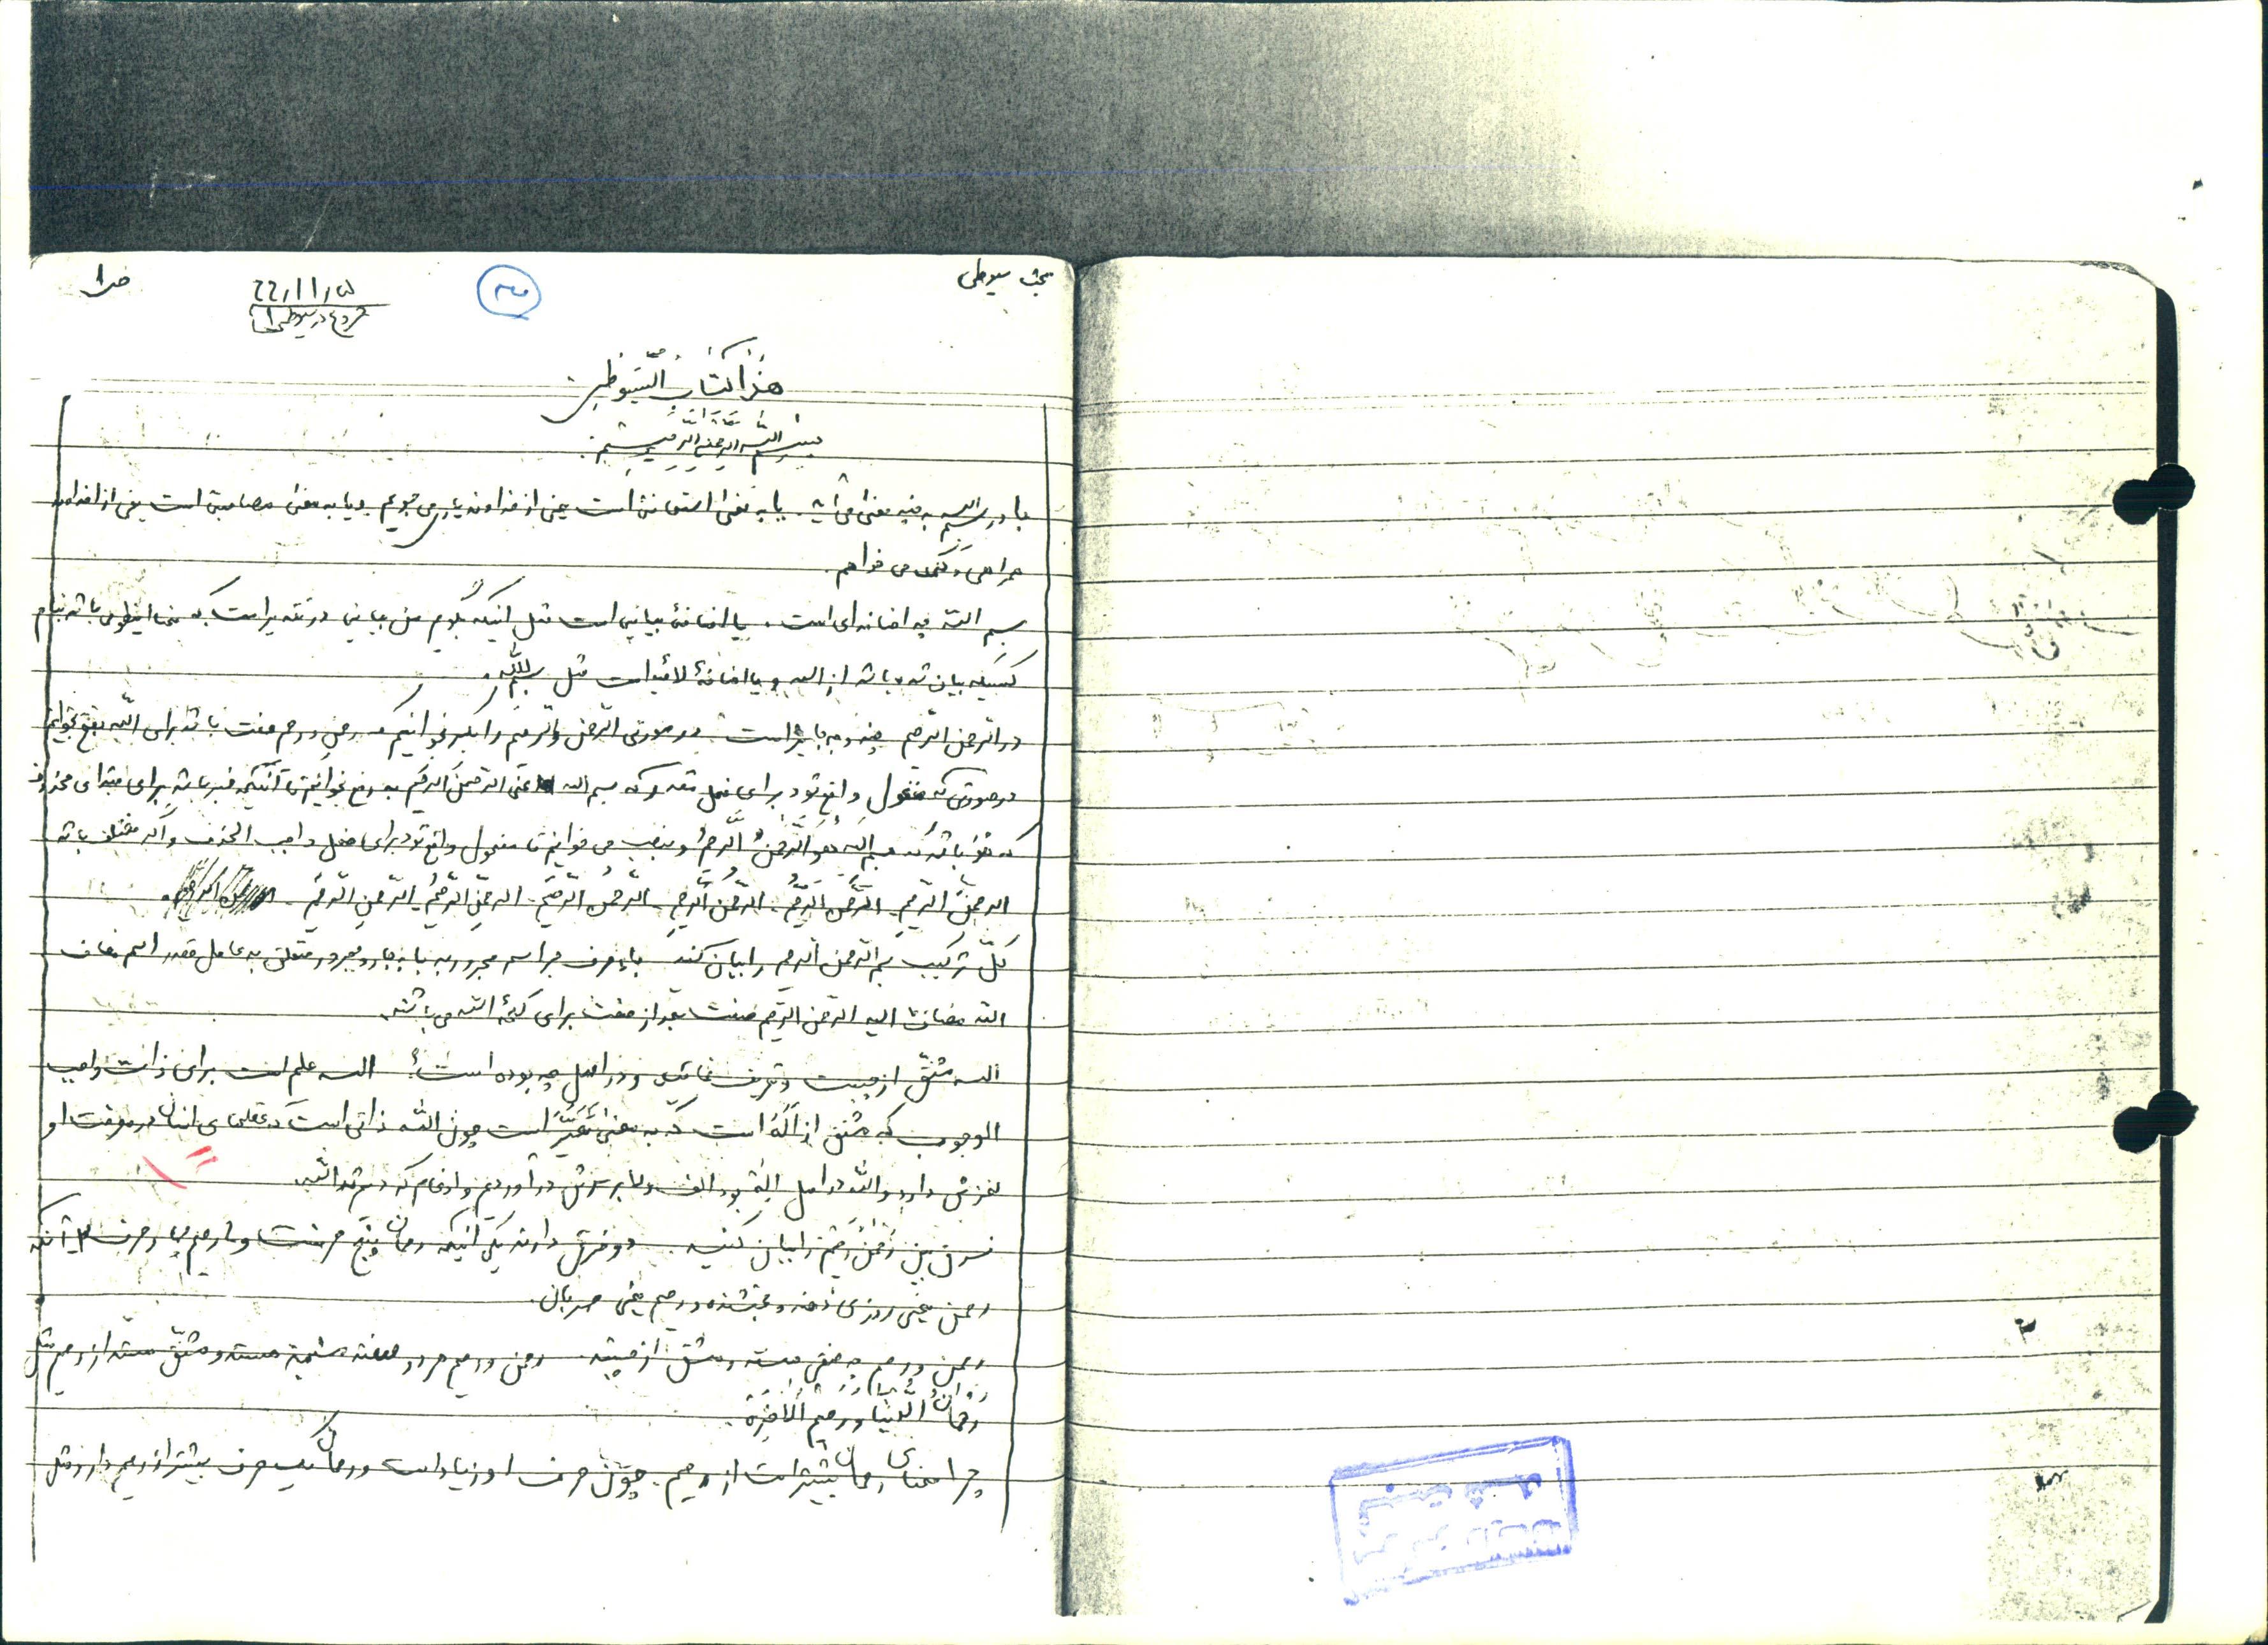 بحث سیوطی
ص ۱
هذا کتاب السیوطی
بسم الله الرحمن الرحیم:
با در بسم الله به چه معنی می‌آید. یا به معنی استعانت است یعنی از خداوند یاری می‌جویم. و یا به معنی مصاحبت است یعنی از خداوند
همراهی و کمک می خواهم.
بسم الله چه اضافه‌ای است. یا اضافهٔ بیانی است مثل اینکه بگویم من بیانی در تقدیر است که معنا اینطوری باشد بنام
کسیکه بیان شده باشد از الله و یا اضافهٔ لامیه است مثل بسم لله.
در الرحمن الرحیم چند وجه جایز است. در صورتی الرحمن والرحیم را بکسر بخوانیم که رحمن و رحیم صفت باشد برای الله بفتح بخوانیم
در صورتی که مفعول واقع شود برای فعل مقدر که بسم الله اعنی الرحمنَ الرحیم به رفع بخوانیم تا آنکه خبر باشد برای مبتدای محذوف
که هُوَ باشد که بسم الله هُوَ الرَّحمنُ الرحیمُ و بنصب می خوانیم تا مفعول واقع شود برای فعل واجب الحذف و اگر مختلف باشد
الرحمن الرحیم. الرحمن الرحیم. الرحمن الرحیم. الرحمن الرحیم. الرحمن الرحیم. الرحمن الرحیم.
کلّ ترکیب بسم الرحمن الرحیم را بیان کنید باء حرف جر اسم مجرور به باء جار و مجرور متعلق به عامل مقدر اسم مضاف
الله مضاف الیه الرحمن الرحیم صفت بعد از صفت برای کلمهٔ الله می باشد.
الله مشتق از چیست و تعریف نمائید و در اصل چه بوده است؟ الله علم است برای ذات واجب
الوجوب که مشتق از اَلَهَ است که به معنی تَحَیَّرَ است چون الله ذاتی است که عقلهای انسان در معرفت او
لغزش دارد و الله در اصل اِلٰه بود الف و لام بر سرش در آوردیم و ادغام کردیم شد الله.
فرق بین رَحمن رَحیم را بیان کنید. دو فرق دارند یکی اینکه رحمان پنج حرفست و رحیم چهار حرف ۲ـ آنکه
رحمن یعنی روزی دهنده و بخشنده و رحیم یعنی مهربان.
رحمن و رحیم چه صفتی هستند و مشتق از چیستند. رحمن و رحیم هر دو صفت مشبهة هستند و مشتق هستند از رحم مثل
رَحمانُ الدُّنیا و رحیمُ الآخِرَة.
چرا معنای رحمان بیشتر است از رحیم. چون حرف او زیاد است و رحمان یک حرف بیشتر از رحیم دارد مثل
۲
۳